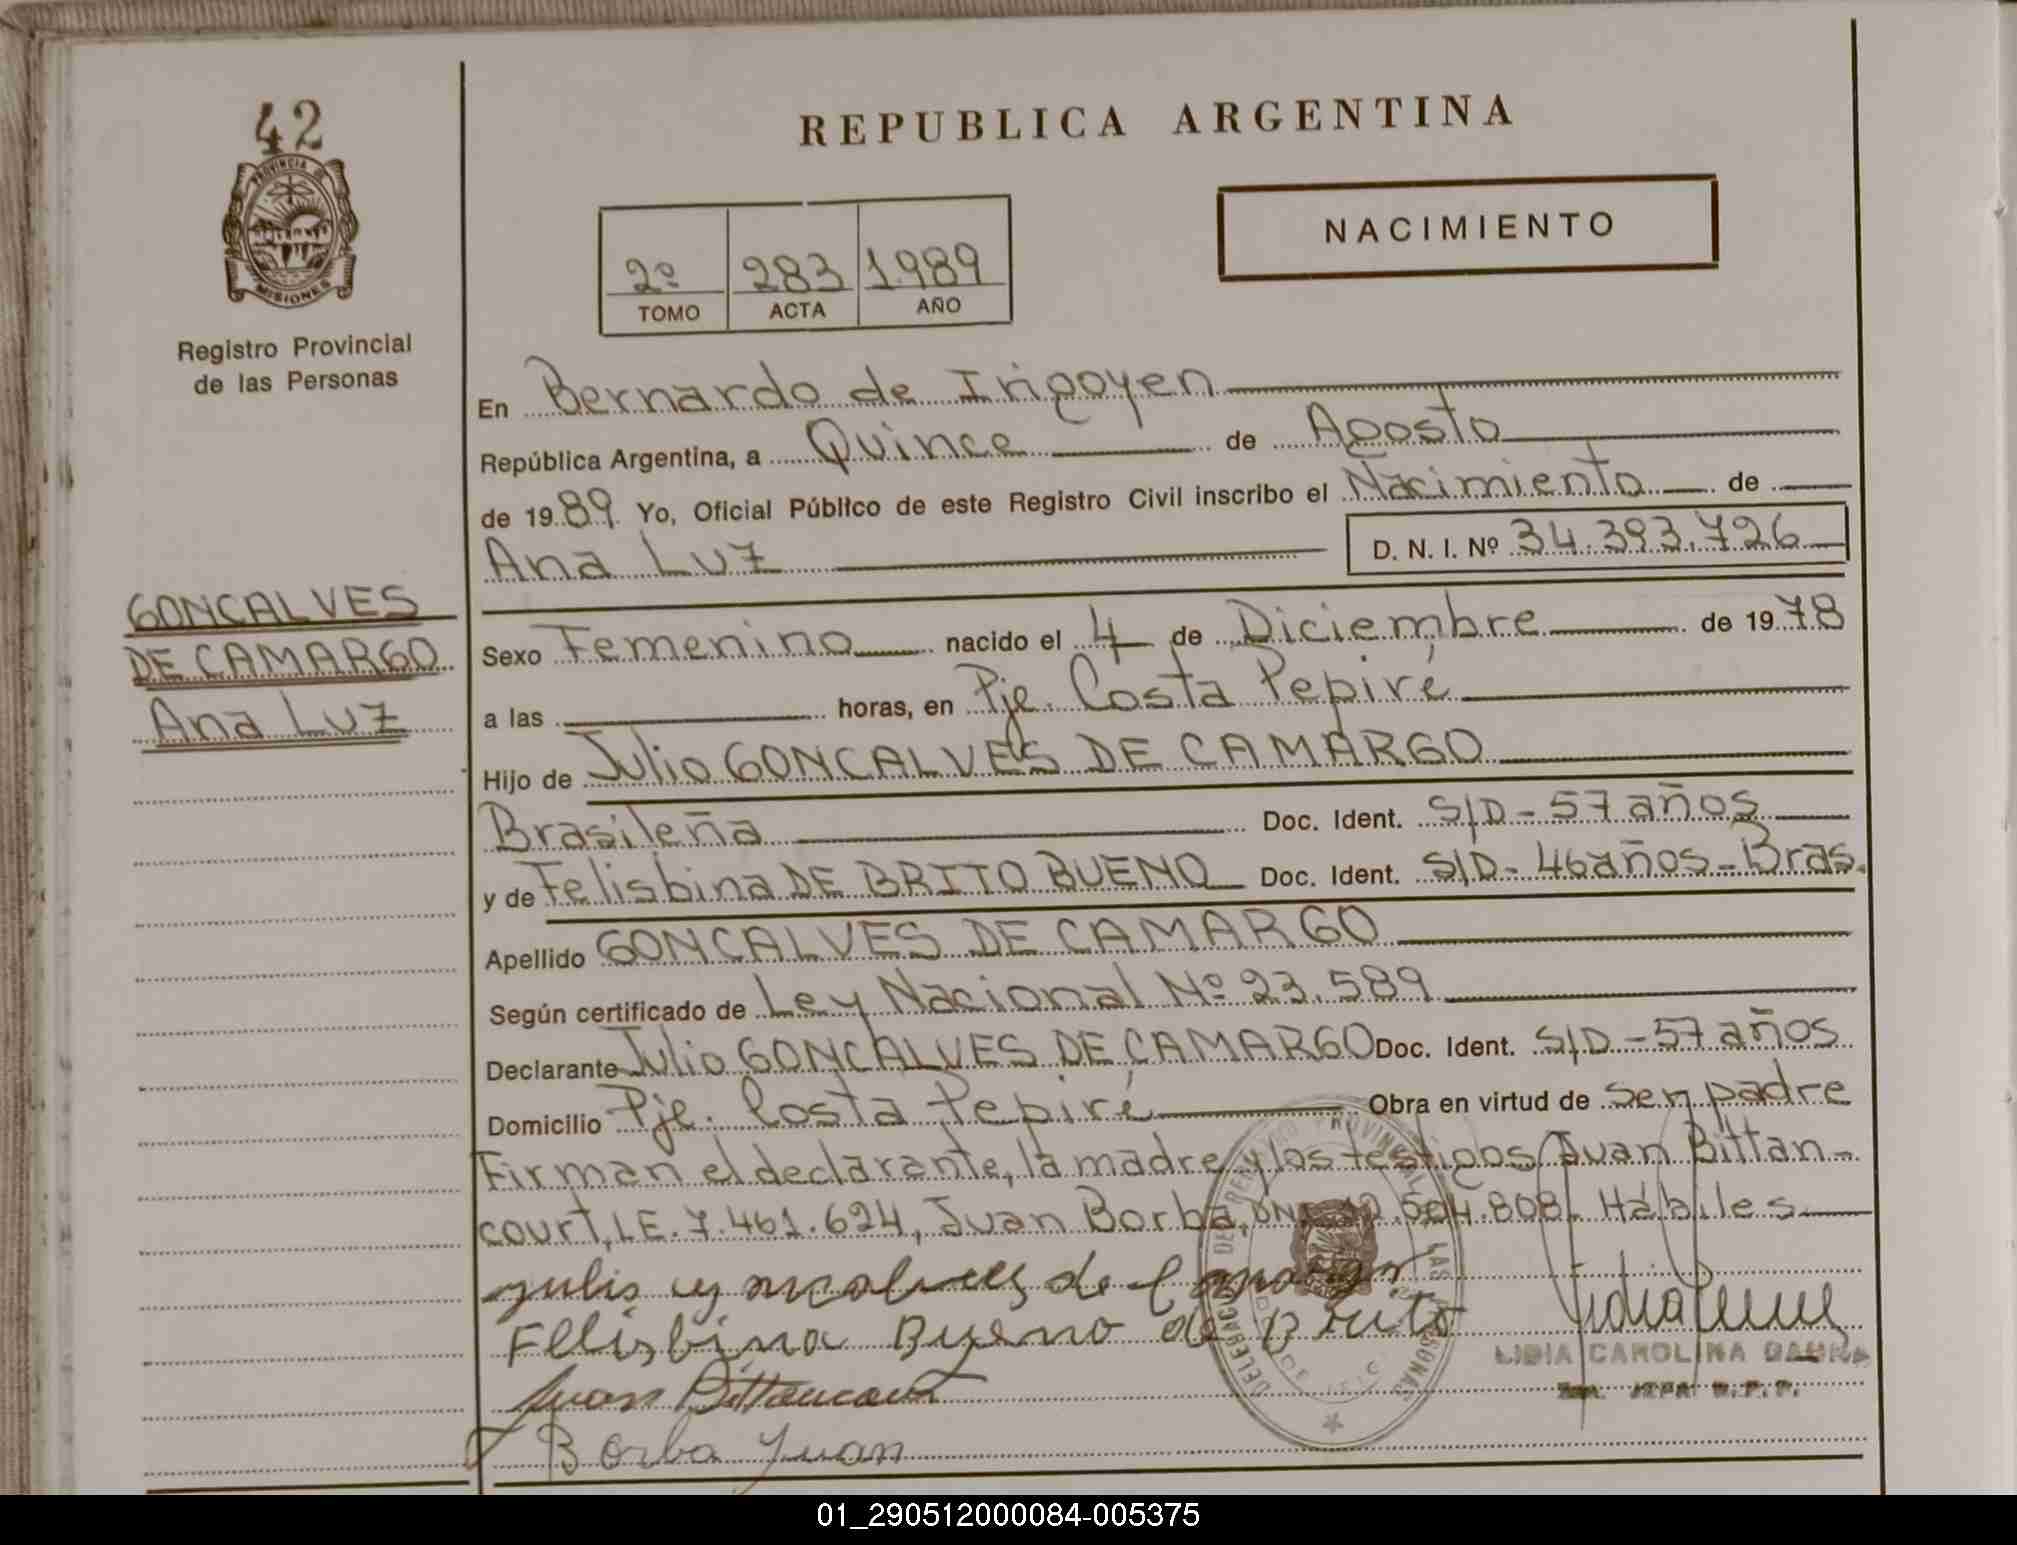 42
PROVINCIA DE
MISIONES
Registro Provincial
de las Personas
GONCALVES
DE CAMARGO
Ana Luz
REPUBLICA ARGENTINA
NACIMIENTO
2º 283 1.989
TOMO ACTA AÑO
En Bernardo de Irigoyen
República Argentina, a Quince de Agosto
de 19 89 Yo, Oficial Público de este Registro Civil inscribo el Nacimiento de
Ana Luz D. N. I. Nº 34.393.726
Sexo Femenino nacido el 4 de Diciembre de 19 78
a las horas, en Pje. Costa Pepiré
Hijo de Julio GONCALVES DE CAMARGO
Brasileña Doc. Ident. S/D - 57 años
y de Felisbina DE BRITO BUENO Doc. Ident. S/D - 46 años - Bras.
Apellido GONCALVES DE CAMARGO
Según certificado de Ley Nacional Nº 23.589
Declarante Julio GONCALVES DE CAMARGO Doc. Ident. S/D - 57 años
Domicilio Pje. Costa Pepiré Obra en virtud de ser padre
Firman el declarante, la madre y los testigos Juan Bittan-
court, LE. 7.461.624, Juan Borba, DNI. .504.808. Hábiles.
de
Elisbina Bueno de Brito
LIDIA CAROLINA
Juan Bittencourt
Borba Juan
01_290512000084-005375